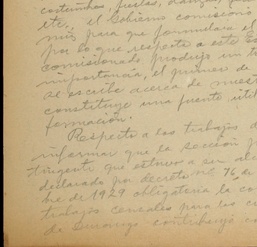 costumbres, fiestas, danzas,
etc. el Gobierno comisionó
para que formulara el
por lo que respecta a este
comisionado produjo un
importancia, el primero de
se escribe acerca de
constituye una fuente útil
formación.
Respecto a los trabajos
informar que la sección
tingente que estuvo a
declarado por decreto nº 76,
bre de 1929 obligatoria la
trabajos censales para los
de Durango contribuyó